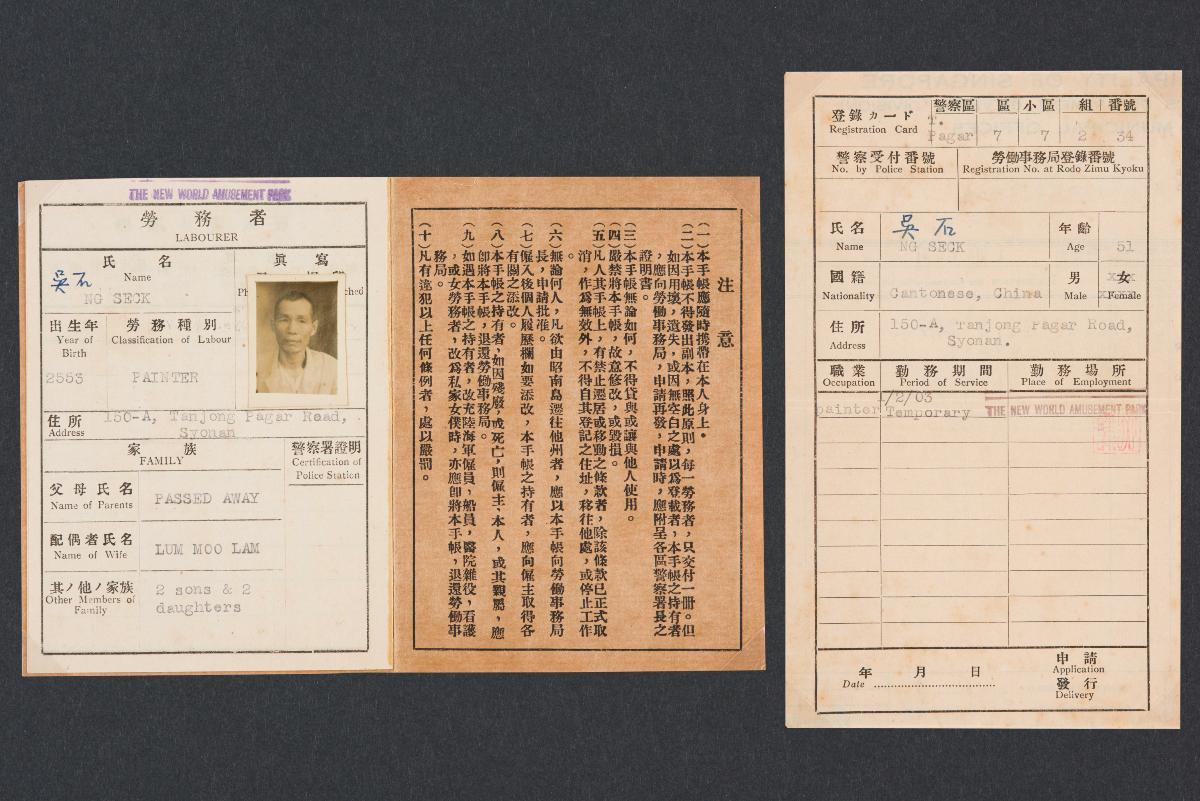 THE NEW WORLD AMUSEMENT PARK
勞務者
LABOURER
氏名
Name
吳石
NG SECK
寫眞
出生年
Year of
Birth
勞務種別
Classification of Labour
2553
PAINTER
住所
Address
150-A, Tanjong Pagar Road,
Syonan
家族
FAMILY
警察署證明
Certification of
Police Station
父母氏名
Name of Parents
PASSED AWAY
配偶者氏名
Name of Wife
LUM MOO LAM
其ノ他ノ家族
Other Members of
Family
2 sons & 2
daughters
注意
(一)本手帳應隨時携帶在本人身上。
(二)本手帳不得發出副本,照此原則,每一勞務者,只交付一冊。但
如因用壞,遺失,或因無空白之處以爲登載者,本手帳之持有者
,應向勞働事務局,申請再發,申請時,應附呈各區警察署長之
證明書。
(三)本手帳無論如何,不得貸與或讓與他人使用。
(四)嚴禁將本手帳,故意修改,或毀損。
(五)凡人其手帳上,有禁止遷居或移動之條款者,除該條款已正式取
消,作爲無效外,不得自其登記之住址,移往他處,或停止工作
。
(六)無論何人,凡欲由昭南島遷往他州者,應以本手帳向勞働事務局
長,申請批准。
(七)僱入後個人履歷欄如要添改,本手帳之持有者,應向僱主取得各
有關之添改。
(八)本手帳之持有者,如因殘廢,或死亡,則僱主、本人,或其親屬,應
卽將本手帳,退還勞働事務局。
(九)如遇本手帳之持有者,改充陸海軍僱員,船員,醫院雜役,看護
,或女勞務者,改爲私家女僕時,亦應卽將本手帳,退還勞働事
務局。
(十)凡有違犯以上任何條例者,處以嚴罰。
登錄カード
Registration Card
警察區
區
小區
組
番號
T.
Pagar
7
7
2
34
警察受付番號
No. by Police Station
勞働事務局登錄番號
Registration No. at Rodo Zimu Kyoku
氏名
Name
吳石
NG SECK
年齡
Age
51
國籍
Nationality
Cantonese, China
男
Male
女
Female
住所
Address
150-A, Tanjong Pagar Road,
Syonan.
職業
Occupation
勤務期間
Period of Service
勤務場所
Place of Employment
1/2/03
painter
Temporary
THE NEW WORLD AMUSEMENT PARK
年 月 日
Date
申請
Application
發行
Delivery